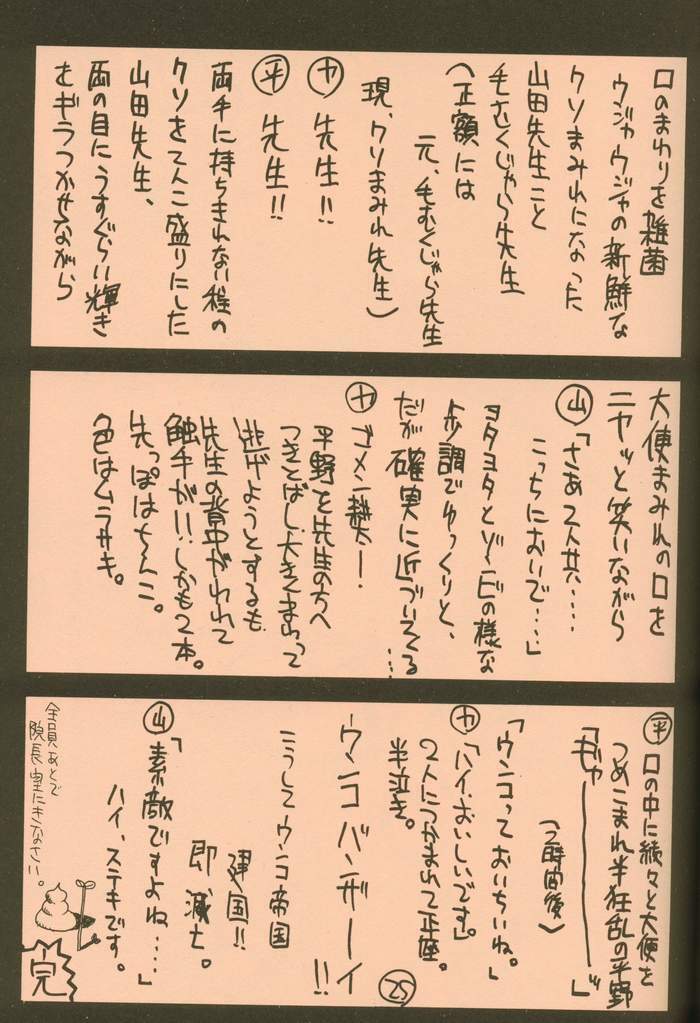 口のまわりを雑菌
ウジャウジャの新鮮な
クソまみれになった
山田先生こと
毛むくじゃら先生
(正額には
元、毛むくじゃら先生
現、クソまみれ先生)
㋕先生!!
㋭先生!!
両手に持ちきれない程の
クソをてんこ盛りにした
山田先生、
両の目にうすぐらい輝き
をギラつかせながら
大便まみれの口を
ニヤッと笑いながら
㊤「さあ2人共……
こっちにおいで……」
ヨタヨタとゾンビの様な
歩調でゆっくりと、
だが確実に近づいてくる…
㋕ゴメン
平野を先生の方へ
つきとばし大きくまわって
逃げようとするも
先生の背中がわれて
触手が!!しかも2本。
先っぽはちんこ。
色はムラサキ。
㊥口の中に続々と大便を
つめこまれ半狂乱の平野
「ギャーーーー」
(2時間後)
「ウンコっておいちいね。」
㋕「ハイ、おいしいです」。
2人につかまれて正座。
半泣き。
ウンコバンザーイ!!
こうしてウンコ帝国
建国!!
即滅亡。
㊤「素敵ですよね……」
ハイ、ステキです。
全員あとで
院長室にきなさい。
完
25